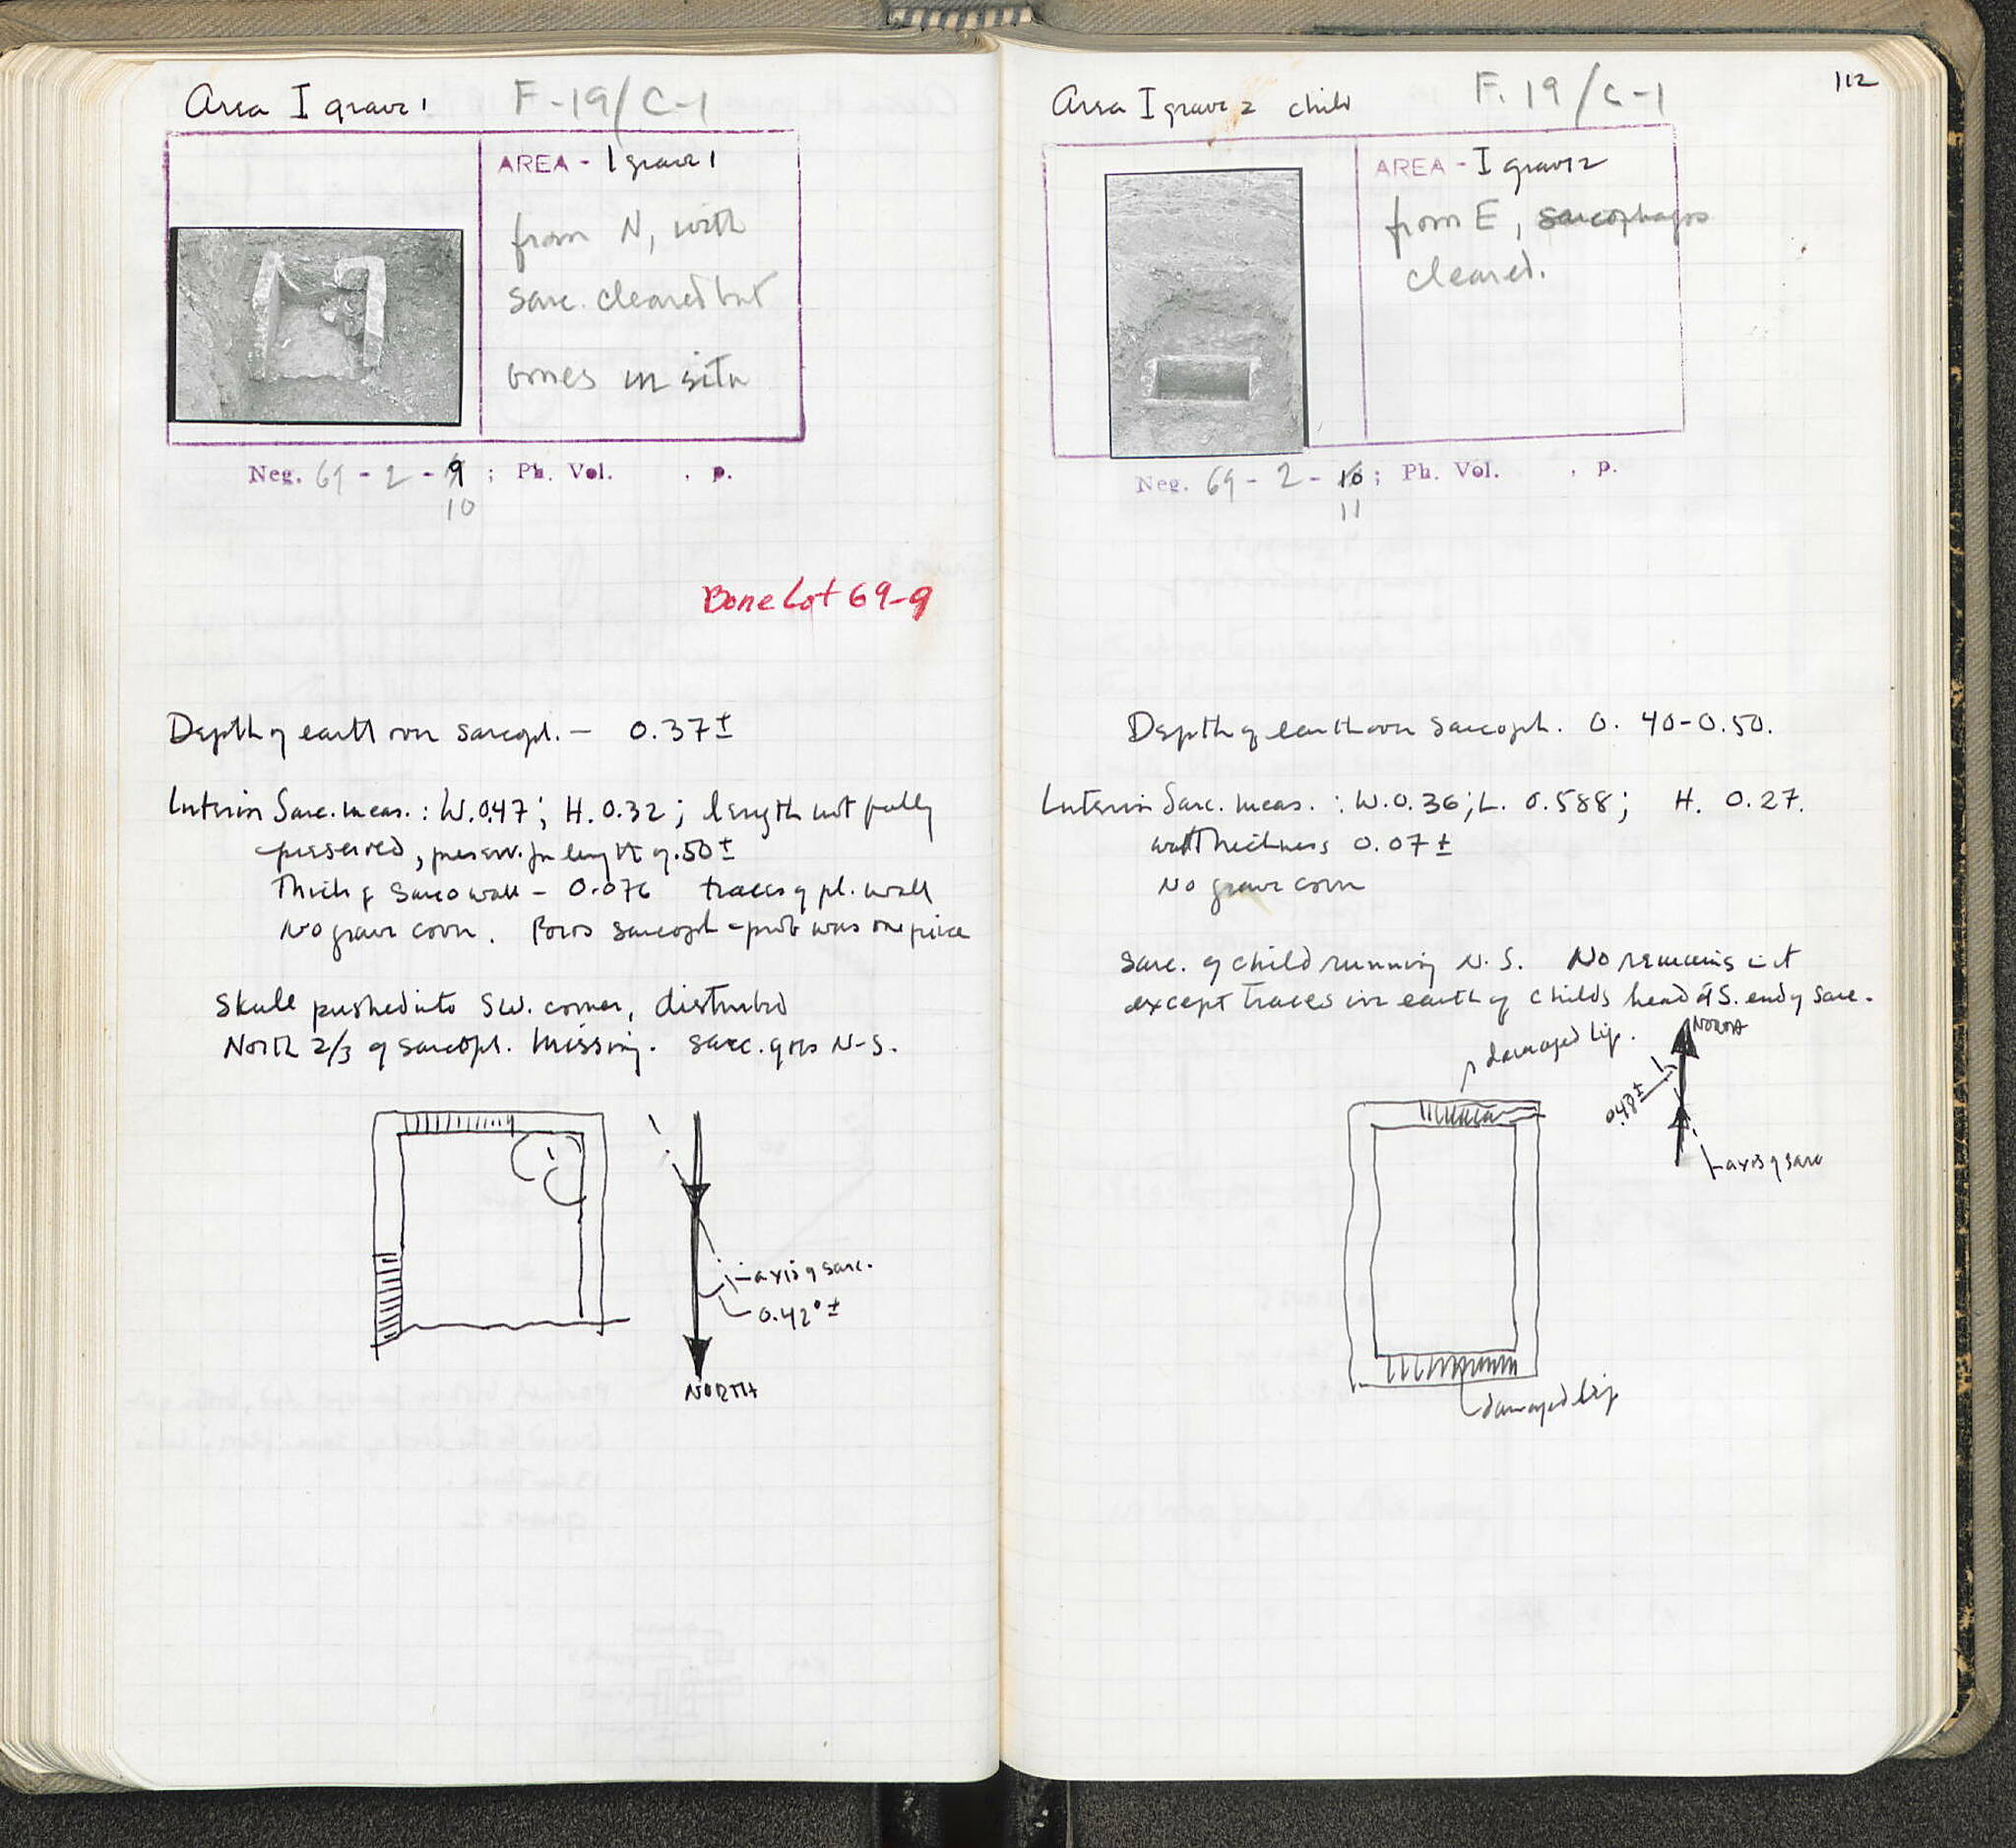 Area I grave 1 F-19/C-1
AREA - I grave 1
from N, with
sarc. cleared but
bones in situ
Neg. 69 - 2 - 9 ; Ph. Vol. , p.
10
Bone Lot 69-9
Depth of earth over sarcoph. — 0.37±
Interior Sarc. meas. : W. 0.47; H. 0.32; length not fully
preserved, preserv. for length of .50±
Thick of sarc wall - 0.076 traces of pl. wall
No grave cover. Poros sarcoph - prob was one piece
Skull pushed into SW. corner, disturbed
North 2/3 of sarcoph. missing. Sarc. goes N-S.
axis of sarc.
0.42° ±
NORTH
112
Area I grave 2 child F. 19/C-1
AREA - I grave 2
from E, sarcophagos
cleared.
Neg. 69 - 2 - 10 ; Ph. Vol. , p.
11
Depth of earth over Sarcoph. 0. 40-0.50.
Interior Sarc. meas. : W. 0.36; L. 0.588; H. 0.27.
wall thickness 0.07 ±
No grave cover
Sarc. of child running N. S. No remains in it
except traces in earth of childs head at S. end of sarc.
damaged lip.
NORTH
0.48 ±
axis of sarc
damaged lip